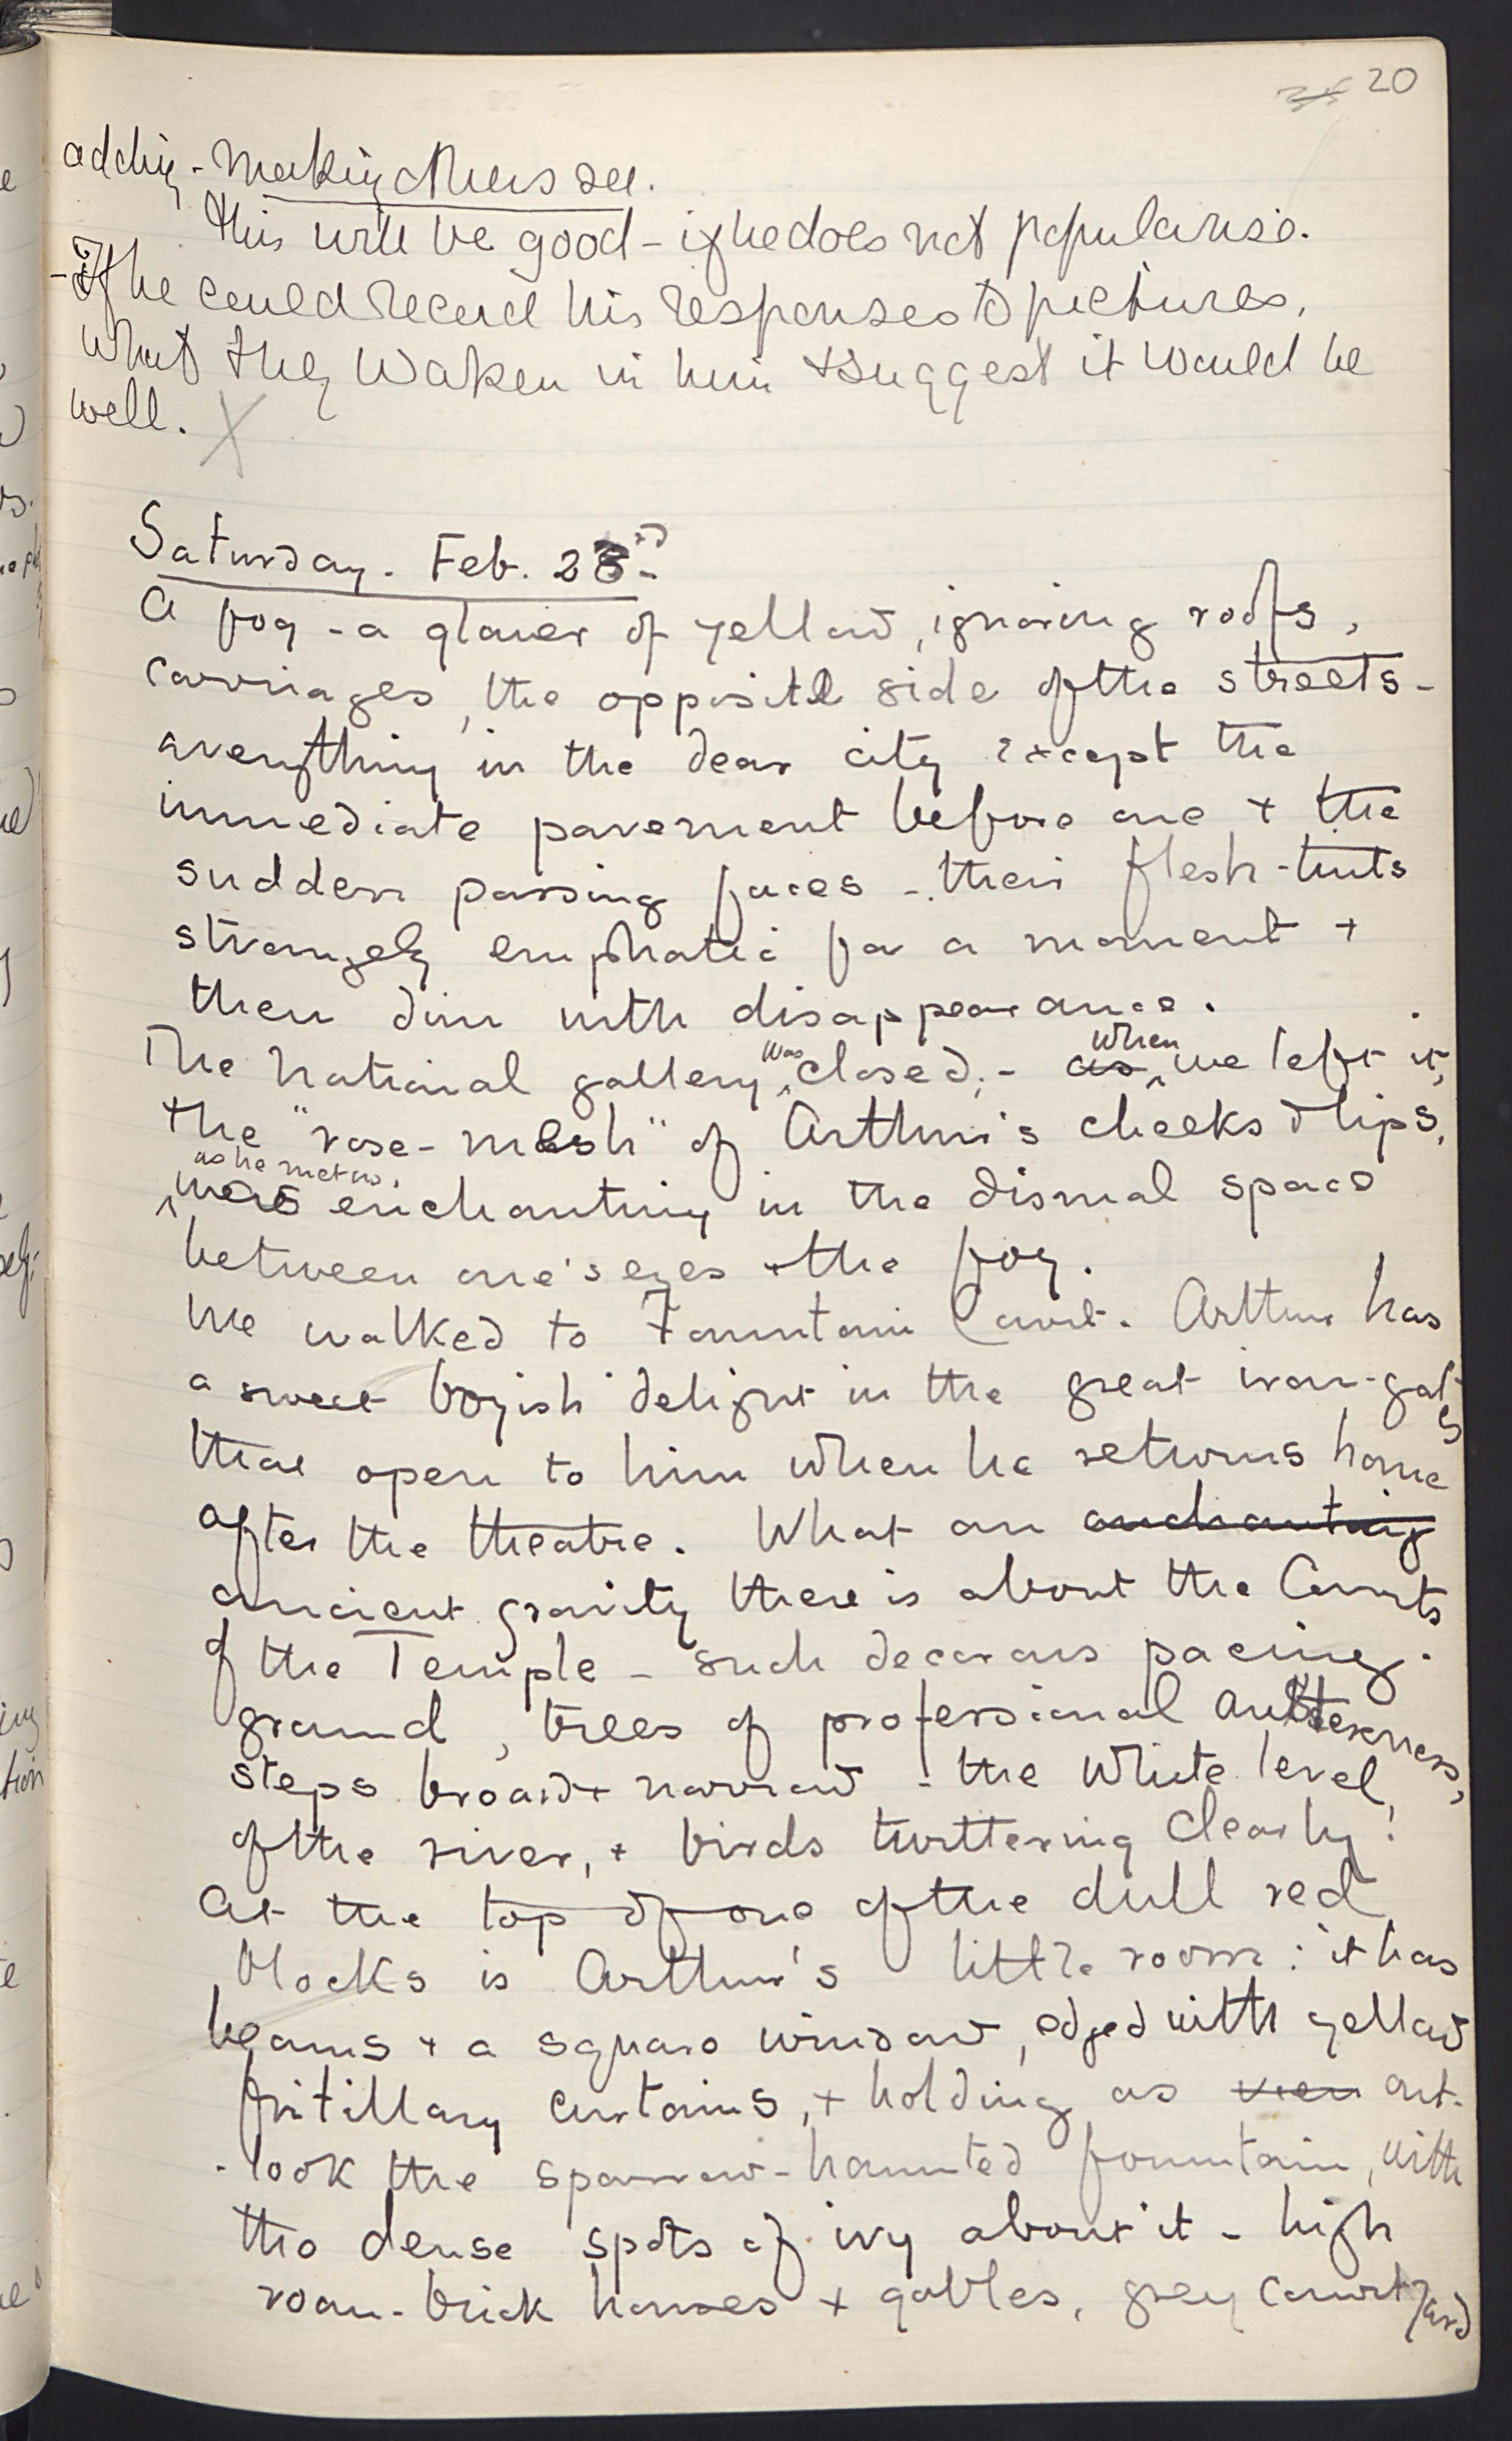 20
adding - making others see.
this will be good - if he does not popularise.
- If he could record his responses to pictures,
what they waken in him & suggest it would be
well. X
Saturday. Feb. 23rd
A fog - a glower of yellow, ignoring roofs,
carriages, the opposite side of the streets -
everything in the dear city except the
immediate pavement before one + the
sudden passing faces - their flesh-tints
strangely emphatic for a moment +
then dim with disappearance.
The National gallery was closed; - as when we left it,
the "rose-mesh" of Arthur's cheeks & lips,
as he met us, was enchanting in the dismal space
between one's eyes + the fog.
We walked to Fountain Court. Arthur has
a sweet boyish delight in the great iron-gates
that open to him when he returns home
after the theatre. What an enchanting
ancient gravity there is about the Courts
of the Temple - such decorous pacing-
ground, trees of professional austereness,
steps broad + narrow - the white level
of the river, + birds twittering clearly!
At the top of one of the dull red
blocks is Arthur's little room: it has
beams + a square window, edged with yellow
fritillary curtains, + holding as view out-
-look the sparrow-haunted fountain, with
the dense spots of ivy about it - high
roan-brick houses + gables, grey courtyard